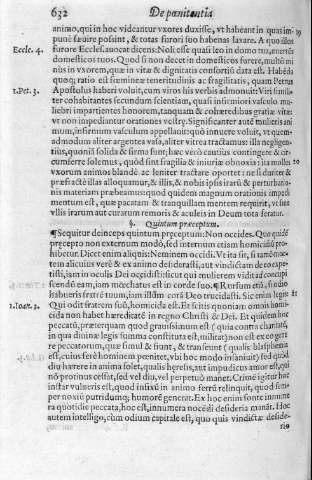 632 De pœnitentia
animo, qui in hoc videantur vxores duxisse, vt habeant in quas im-
punè sæuire possint, & totas furori suo habenas laxare. A quo illos
Eccle. 4. furore Eccles. auocat dicens: Noli esse quasi leo in domo tua, euertēs
domesticos tuos. Quod si non decet in domesticos furere, multò mi
nus in vxorem, quæ in vitæ & dignitatis consortiū data est. Habēda
quoq; ratio est fœmineæ teneritudinis ac fragilitatis, quam Petrus
1. Pet. 3. Apostolus haberi voluit, cum viros his verbis admonuit: Viri simili-
ter cohabitantes secundum scientiam, quasi infirmiori vasculo mu-
liebri impartientes honorem, tanquam & cohæredibus gratiæ vitæ:
vt non impediantur orationes vestræ. Significanter autē mulieris ani
mum, infirmum vasculum appellauit: quò innuere voluit, vt quem-
admodum aliter argentea vasa, aliter vitrea tractamus: illa negligen-
tius, quoniā solida & firma sunt; hæc verò cautius contingere & cir-
cumferre solemus, quòd sint fragilia & iniuriæ obnoxia: ita molles 20
vxorum animos blandè ac leniter tractare oportet: ne si duriter &
præfractè illas alloquamur, & illis, & nobis ipsis iræ & perturbatio-
nis materiam præbeamus: quod quidem magnum orationis impedi
mentum est, quæ pacatam & tranquillam mentem requirit, vt sine
vllis irarum aut curarum remoris & aculeis in Deum tota feratur.
§. Quintum præceptum.
¶Sequitur deinceps quintum præceptum: Non occides. Quo quidē
præcepto non externum modò, sed internum etiam homicidiū pro-
hibetur. Dicet enim aliquis: Neminem occidi. Ve ita sit, si tamē mor-
tem alicuius verè & ex animo desiderasti, aut vindictam de eo expe-
tisti, iam in oculis Dei occidisti: sicut qui mulierem vidit ad concupi
scendū eam, iam mœchatus est in corde suo. ¶Rursum etiā, si odio
habueris fratrē tuum, iam illum corā Deo trucidasti. Sic enim legis:
1. Ioan. 3. Qui odit fratrem suū, homicida est. Et scitis quoniam omnis homi-
cida non habet hæreditatē in regno Christi & Dei. Et quidem hoc
peccatū, præterquam quod grauissimum est (quia contra charitatē,
in qua diuinæ legis summa constituta est, militat) non est ex eo gene
re peccatorum, quæ simul & fiunt, & transeunt (qualis blasphemia
est, cuius ferè hominem pœnitet, vbi hoc modò insaniuit) sed quòd
diu hærere in animo solet, qualis hæresis, aut impudicus amor est, qui
nō protinus cessat, sed vel diu, vel perpetuò manet. Crimē igitur hoc
instar vulneris est, quod infixū in animo ferrū relinquit, quod sem-
per noxiū putridumq; humorē generat. Ex hoc enim fonte innume
ra quotidie peccata, hoc est, innumera nocēdi desideria manāt. Hoc
autem intelligo, cùm odium capitale est, quo quis vindictæ deside-
rio